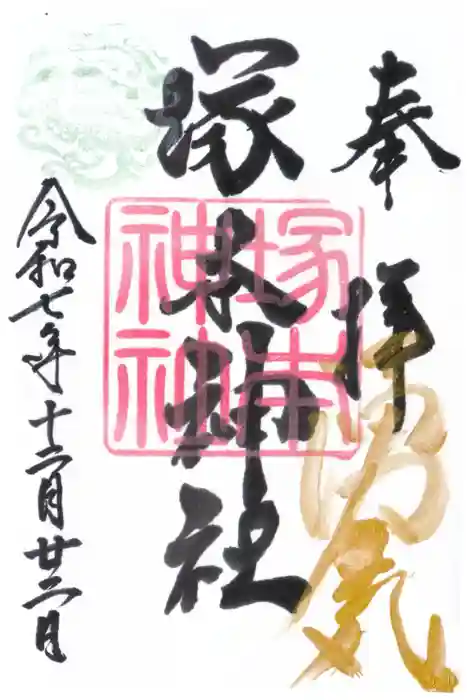 奉拝
塚本神社
塚本
神社
令和七年十二月廿二日